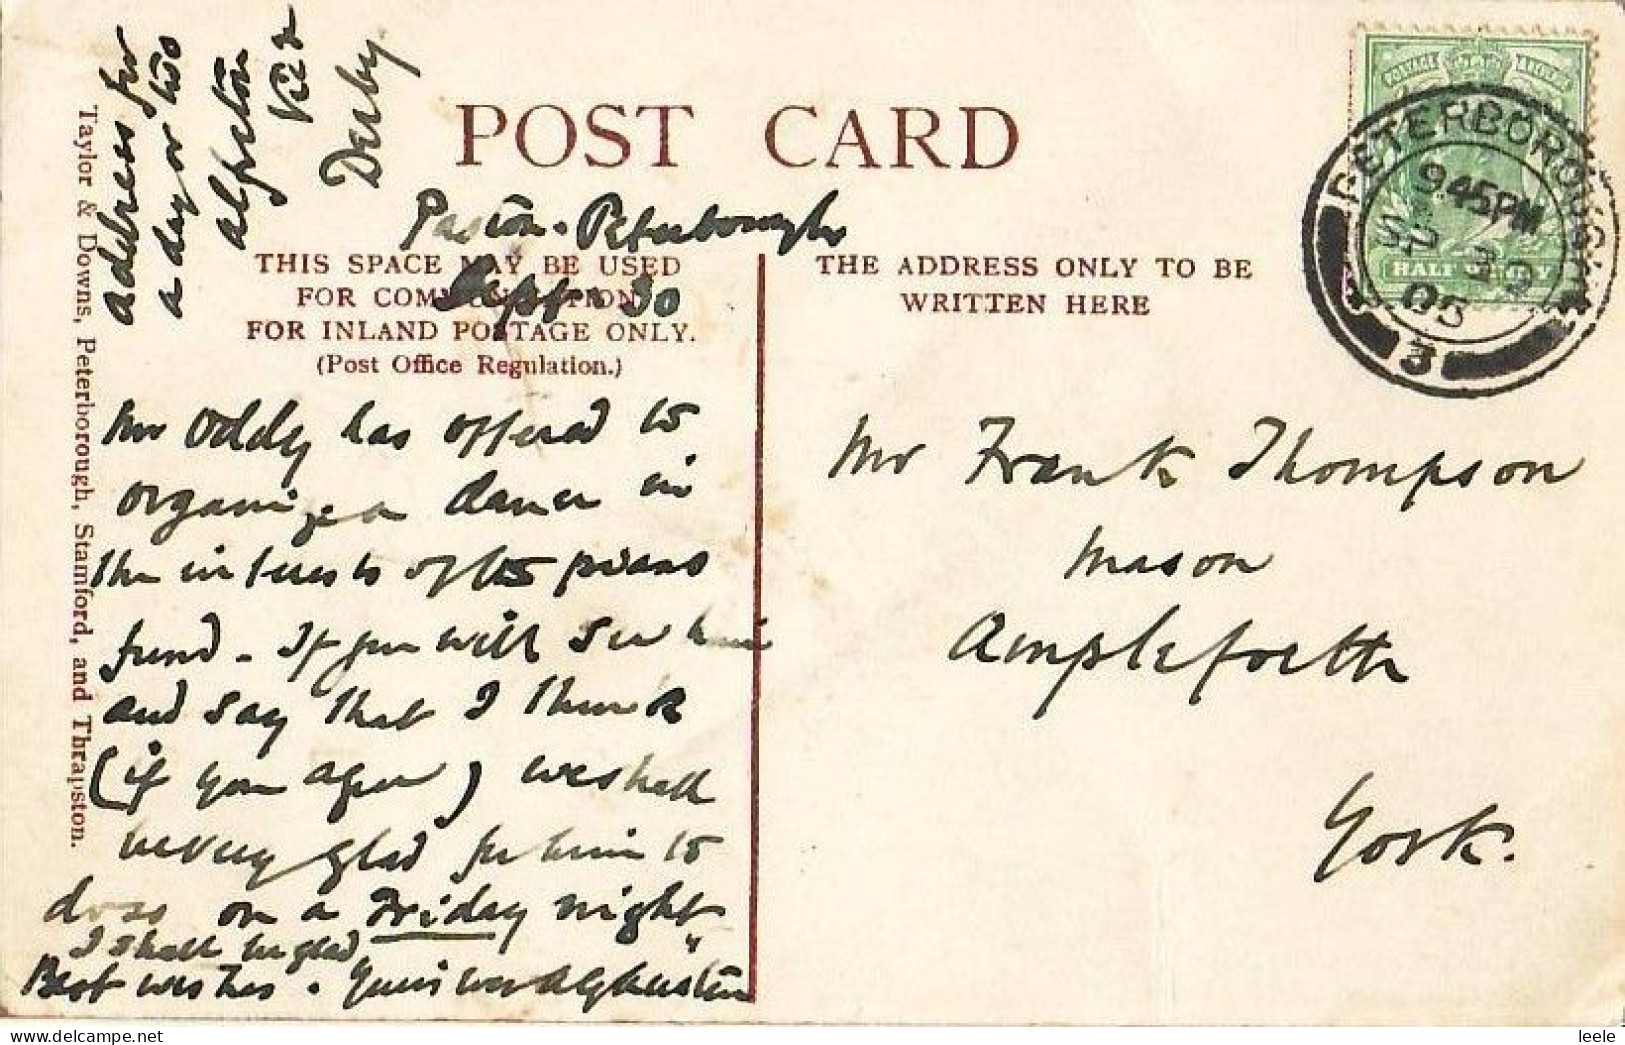 address for
a day or two
Alfreton
Derby.
POST CARD
Paston. Peterborough
Sept 30
THIS SPACE MAY BE USED
FOR COMMUNICATION
FOR INLAND POSTAGE ONLY.
(Post Office Regulation.)
THE ADDRESS ONLY TO BE
WRITTEN HERE
Taylor & Downs, Peterborough, Stamford, and Thrapston.
POSTAGE
HALF PENNY
PETERBOROUGH
9.45PM
SP 30
05
3
Mr Oddy has offered to
organize a dance in
the interests of the piano
fund - If you will see him
and say that I think
(if you agree) we shall
be very glad for him to
do so on a Friday night
I shall be glad
Best wishes.
Mr Frank Thompson
Mason
Ampleforth
York.
leele